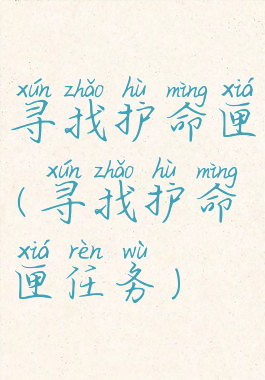 xún zhǎo hù mìng xiá
寻找护命匣
xún zhǎo hù mìng
(寻找护命
xiá rèn wù
匣任务)